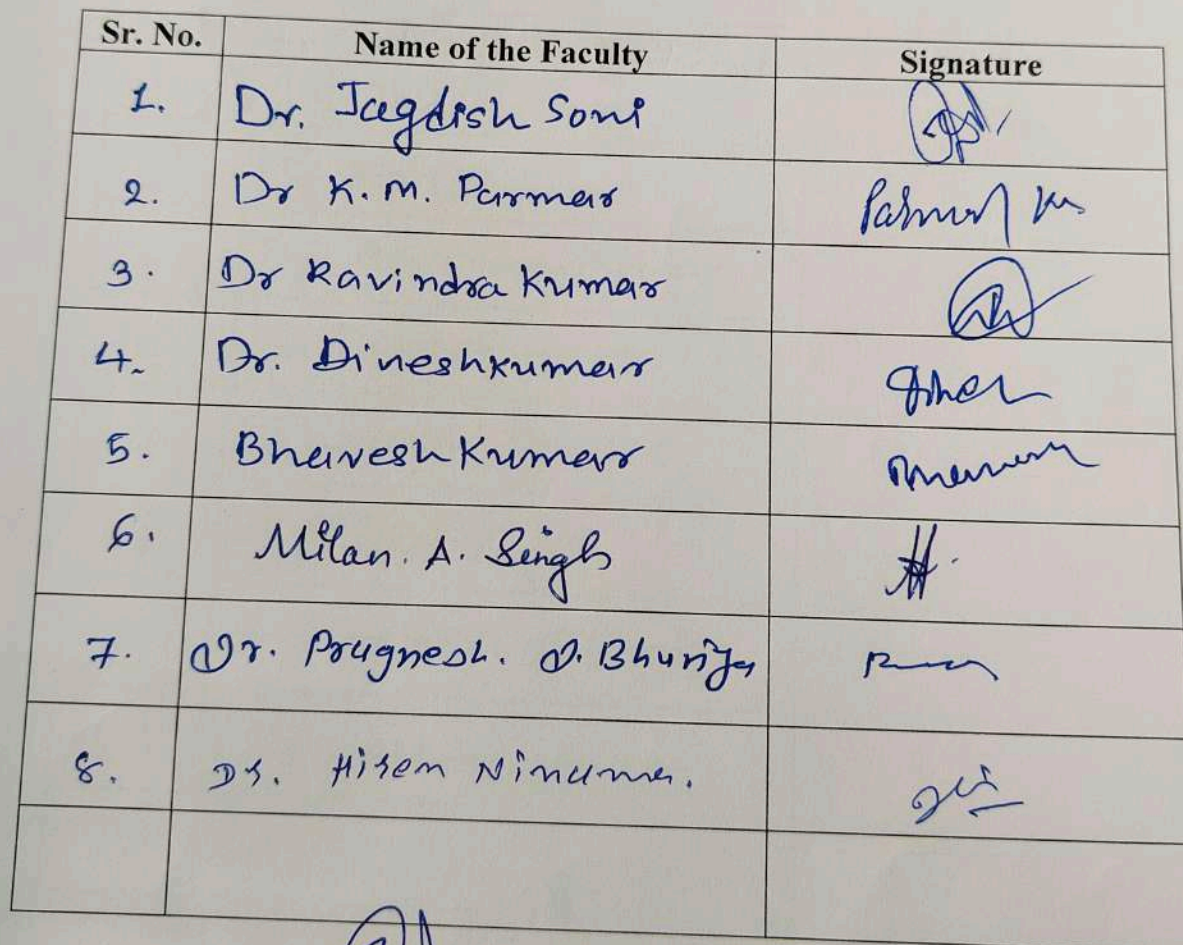 Sr. No. Name of the Faculty Signature
1. Dr. Jagdish Soni
2. Dr K. M. Parmar
3. Dr Ravindra Kumar
4. Dr. Dineshkumar
5. Bhavesh Kumar
6. Milan. A. Singh
7. Dr. Pragnesh. D. Bhuriya
8. Dr. Hiren Ninama.